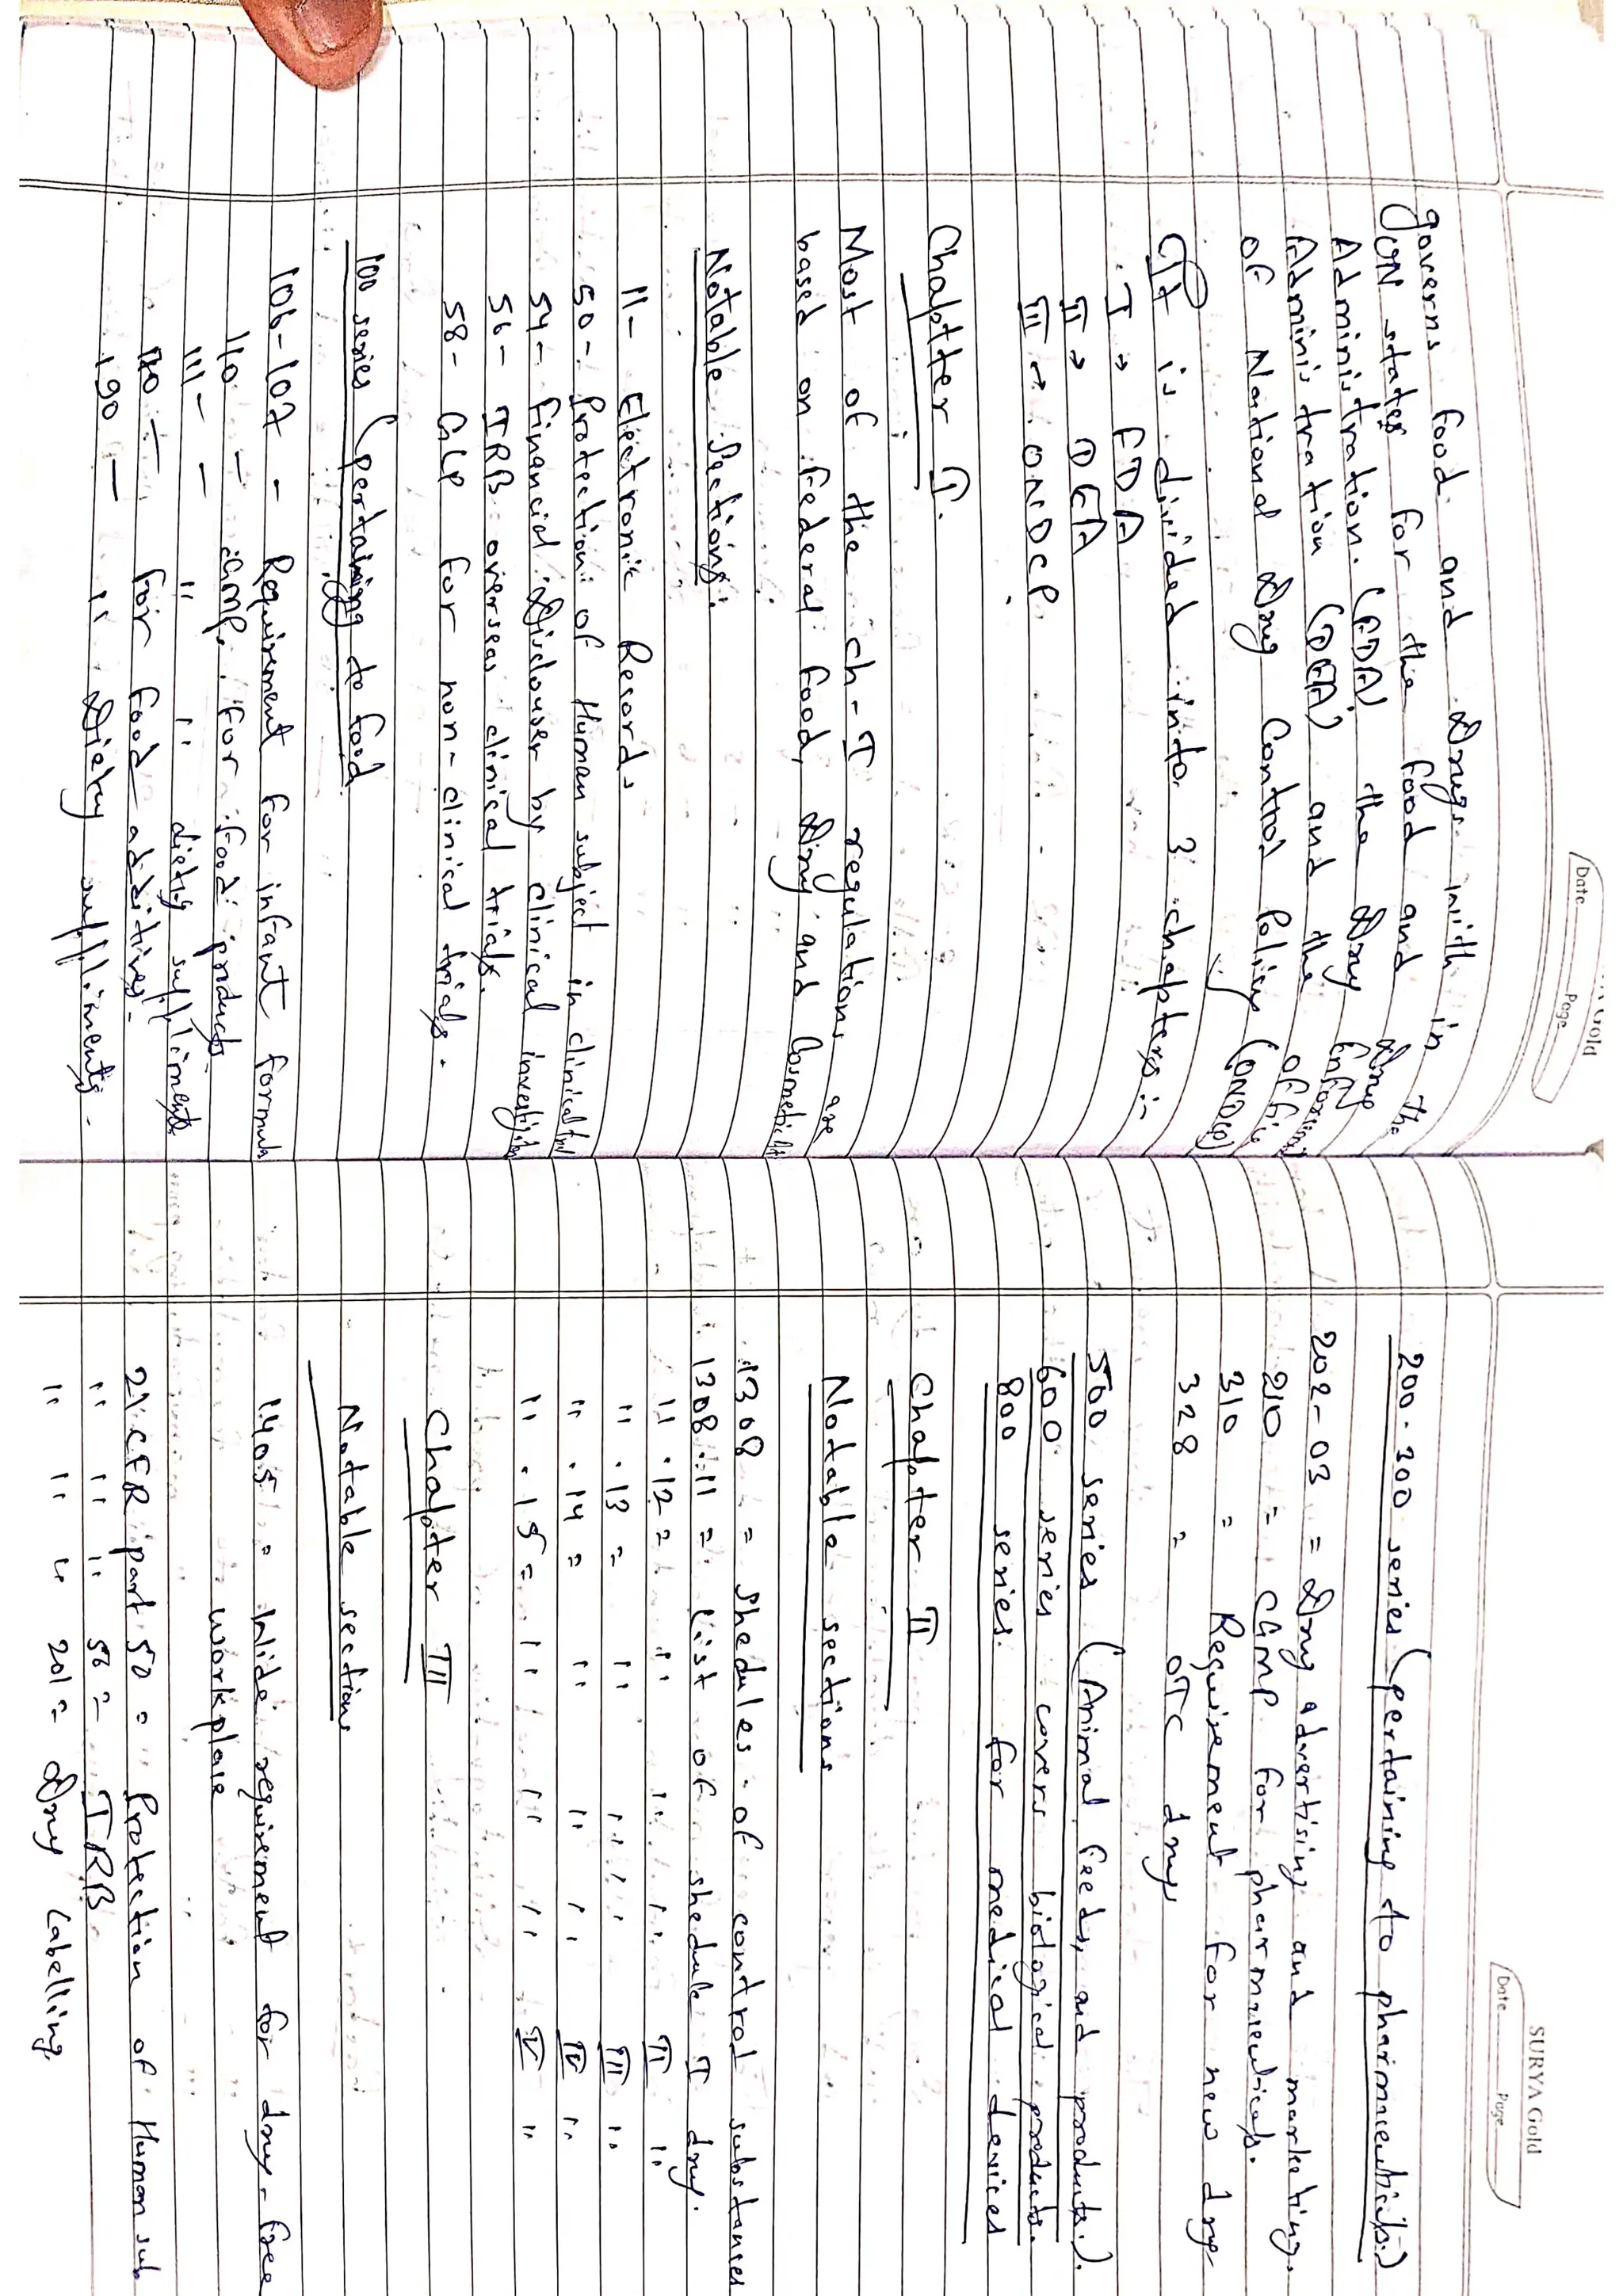 SURYA Gold
Date
Page
governs food and drugs with in the
UN states for the food and drug
Administration. (FDA) the drug Enforcement
Administration (DEA) and the office
of National drug Control Policy (ONDCP)
CFR is divided into 3 chapters :-
I → FDA
II → DEA
III → ONDCP.
Chaptter I.
Most of the ch-I regulations are
based on federal food, drug and Cosmetic Act
Notable Sections :
11 - Electronic Records
50 - Protection of Human subject in clinical trial
54 - Financial Disclouser by clinical investigator
56 - IRB overseas clinical trials.
58 - GLP for non-clinical trials.
100 series (pertaining to food
106-107 - Requirement for infant formula
110 - cGMP. for food products
111 - " " dietry suppliments
170 - for food additives.
190 - " dietry suppliments.
SURYA Gold
Date
Page
200-300 series (pertaining to pharmaceuticals.)
202-03 = Drug advertising and marketing.
210 = cGMP for pharmaceuticals.
310 = Requirement for new drug.
328 = OTC drug
500 series (Animal feeds, and products.).
600 series covers biological products.
800 series for medical devices
Chapter II
Notable sections
1308 = Shedules of control substances
1308.11 = list of shedule I drug.
" .12 = " " " II "
" .13 = " " " III "
" .14 = " " " IV "
" .15 = " " " V "
Chapter III
Notable sections
1405 = Wide requirement for drug-free
workplace
21 CFR part 50 = Protection of Human sub
" " " 56 = IRB
" " " 201 = Drug labelling.